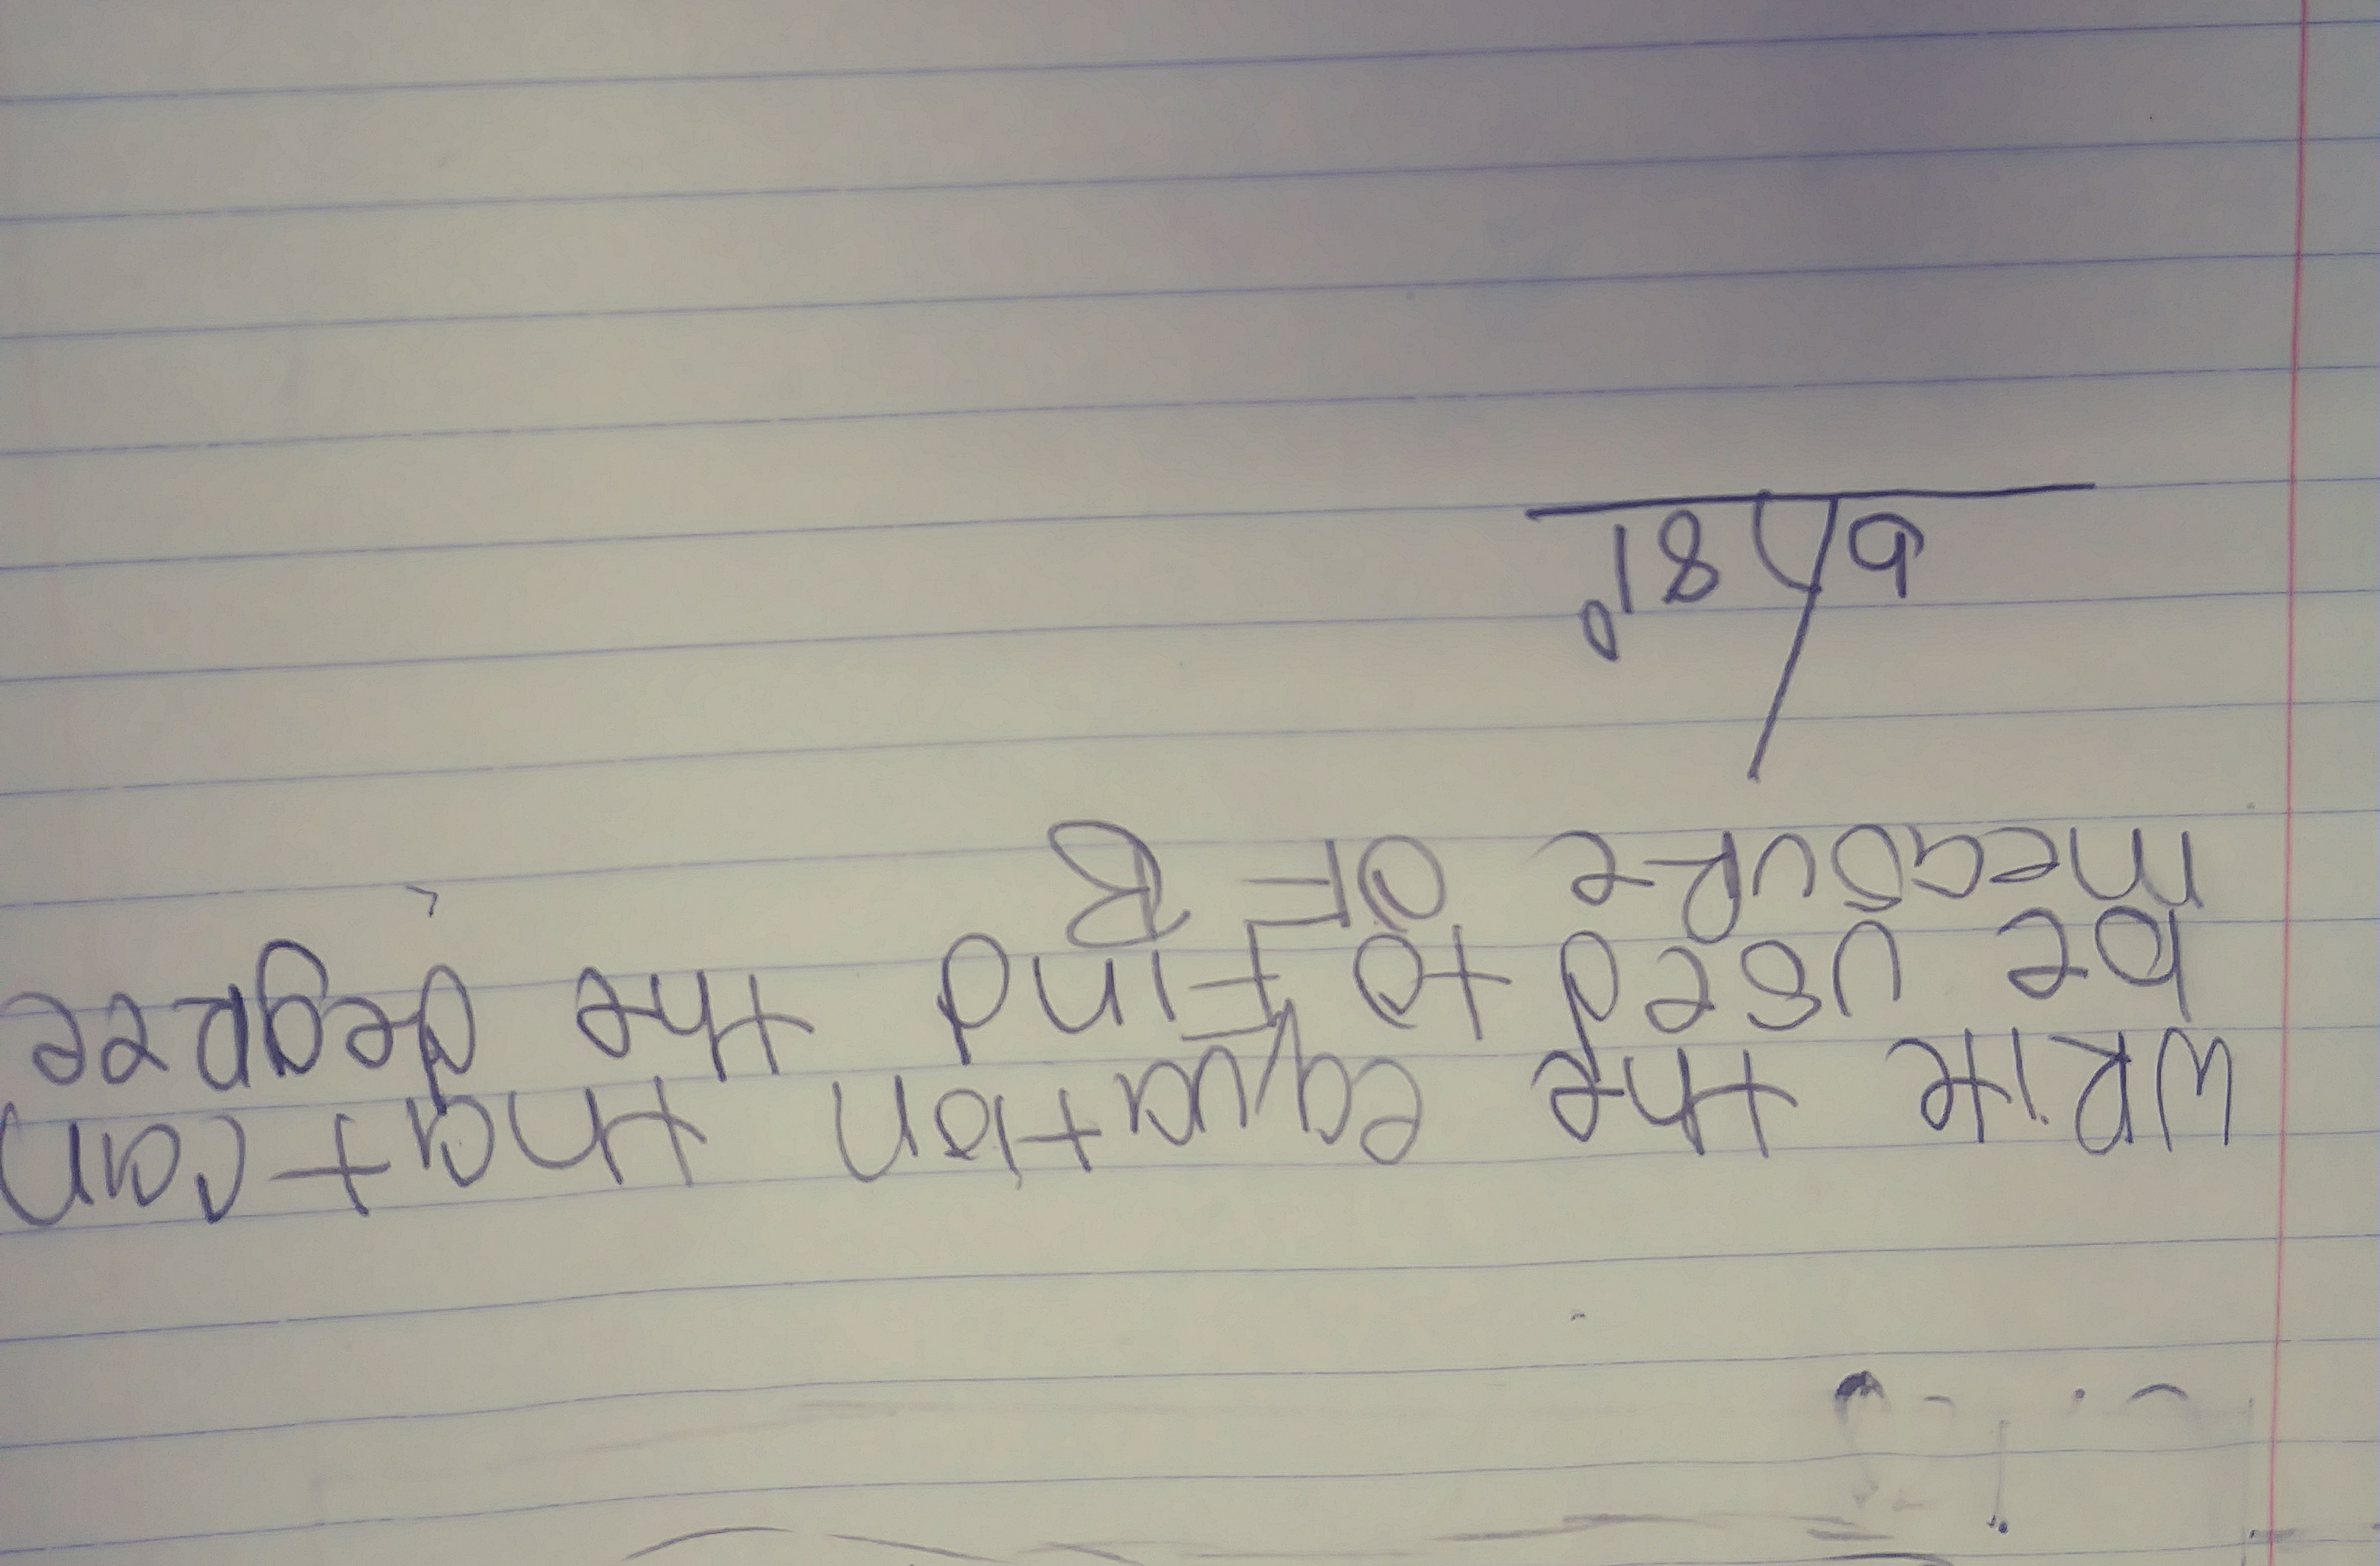 WRITe the equation that can
be used to Find the degRee
measuRe OF B
b 81°